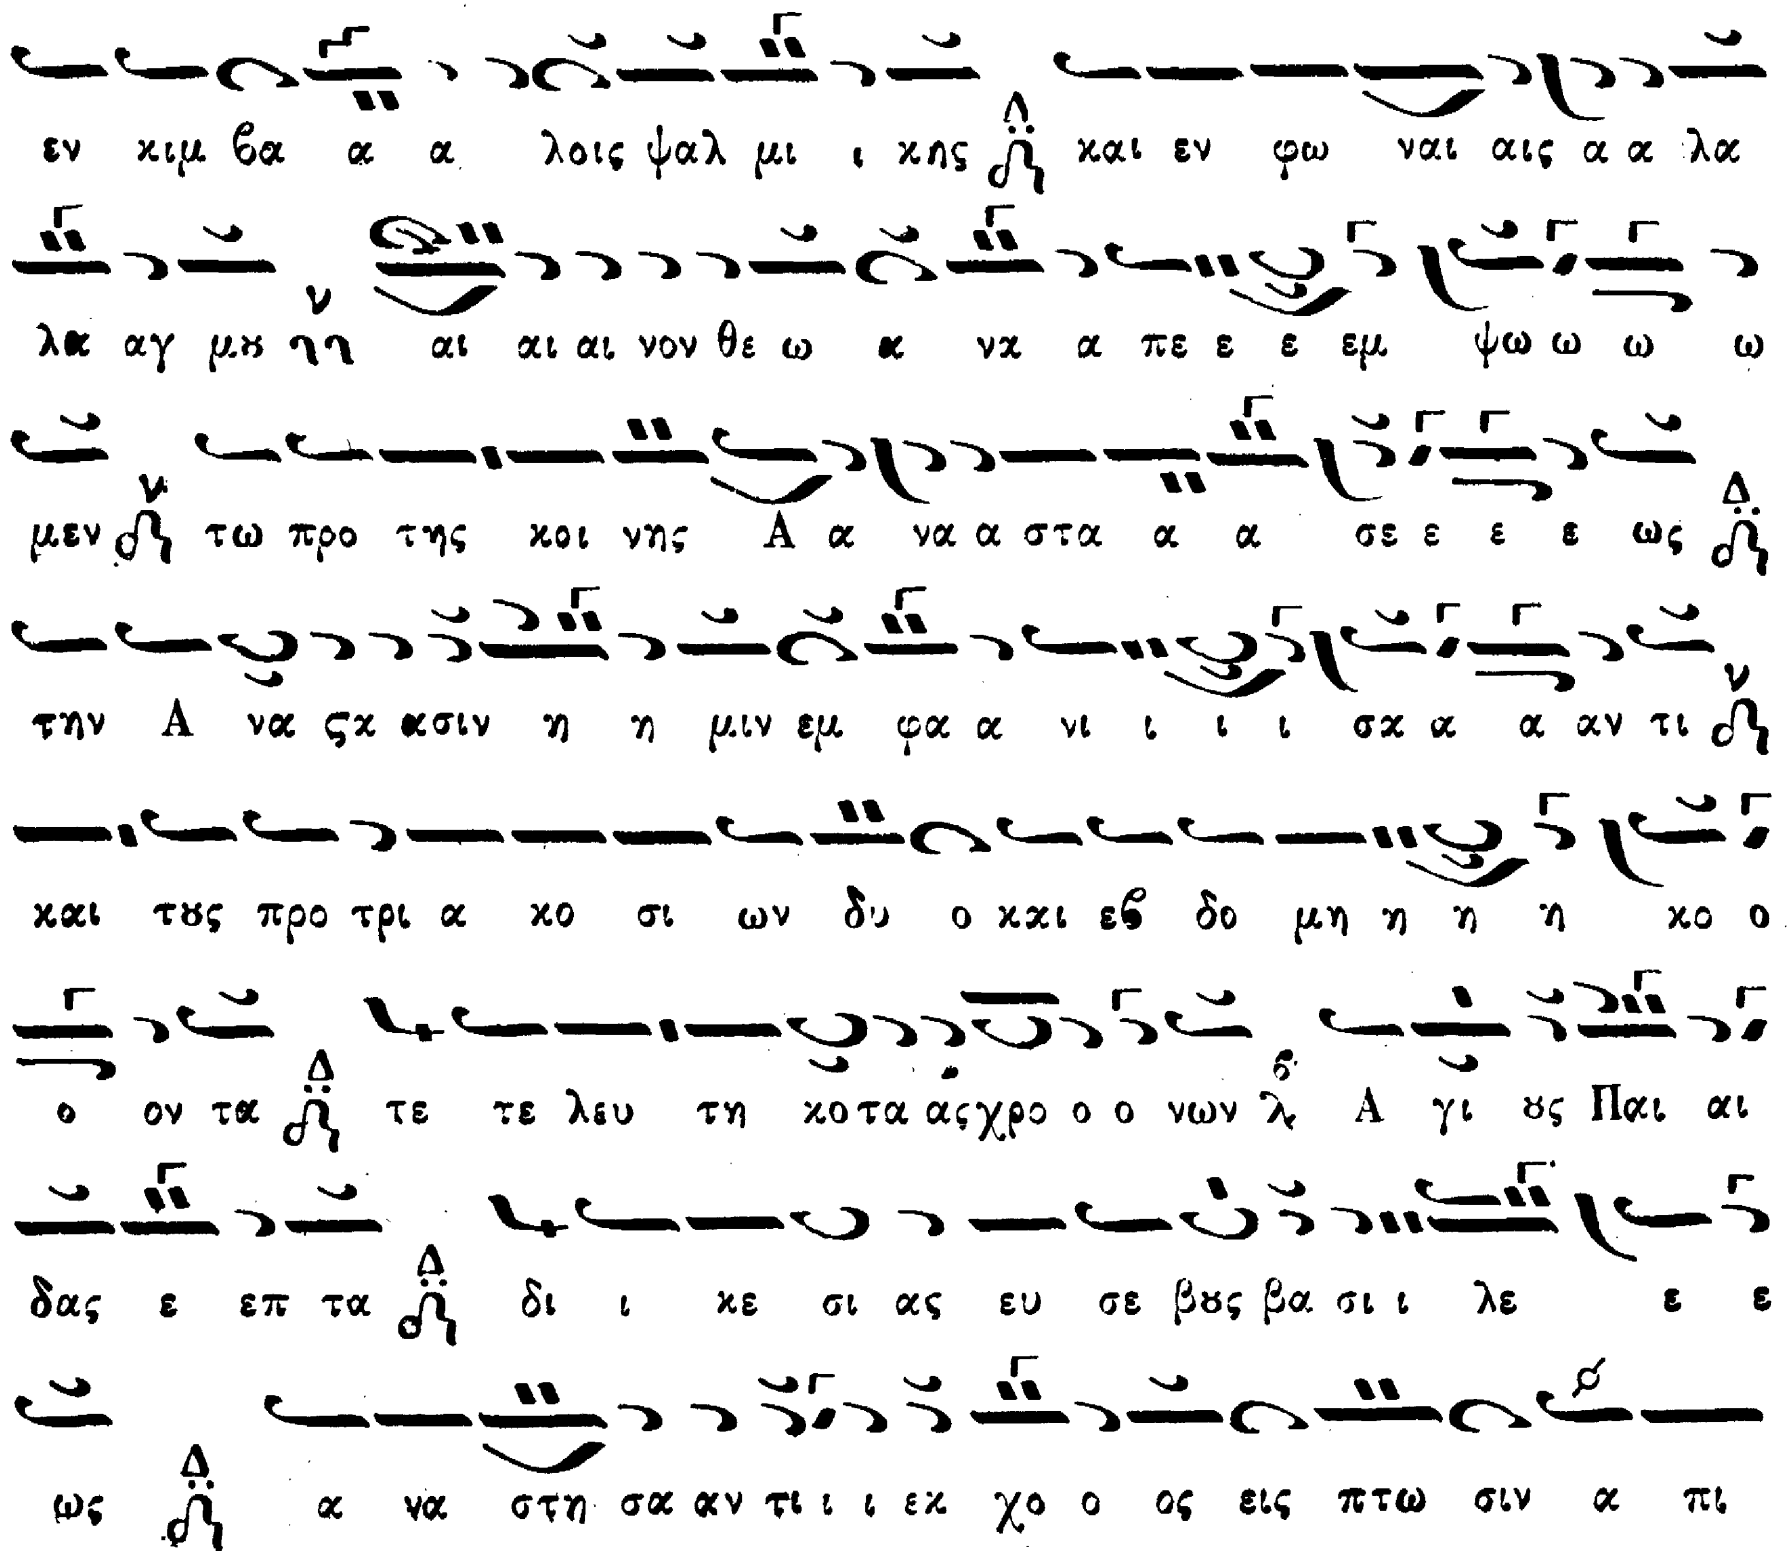 εν κιμ βα α α λοις ψαλ μι ι κης Δ και εν φω ναι αις α α λα
λα αγ μȣ ν αι αι αι νον θε ω α να α πε ε ε εμ ψω ω ω ω
μεν ν τω προ της κοι νης Α α να α στα α α σε ε ε ε ως Δ
την Α να ςκ ασιν η η μιν εμ φα α νι ι ι ι σκ α α αν τι ν
και τȣς προ τρι α κο σι ων δυ ο και εβ δο μη η η η κο ο
ο ον τα Δ τε τε λευ τη κο τα ας χρο ο ο νων β λ Α γι ȣς Παι αι
δας ε επ τα Δ δι ι κε σι ας ευ σε βȣς βα σι ι λε ε ε
ως Δ α να στη σα αν τι ι ι εκ χο ο ος εις πτω σιν α πι